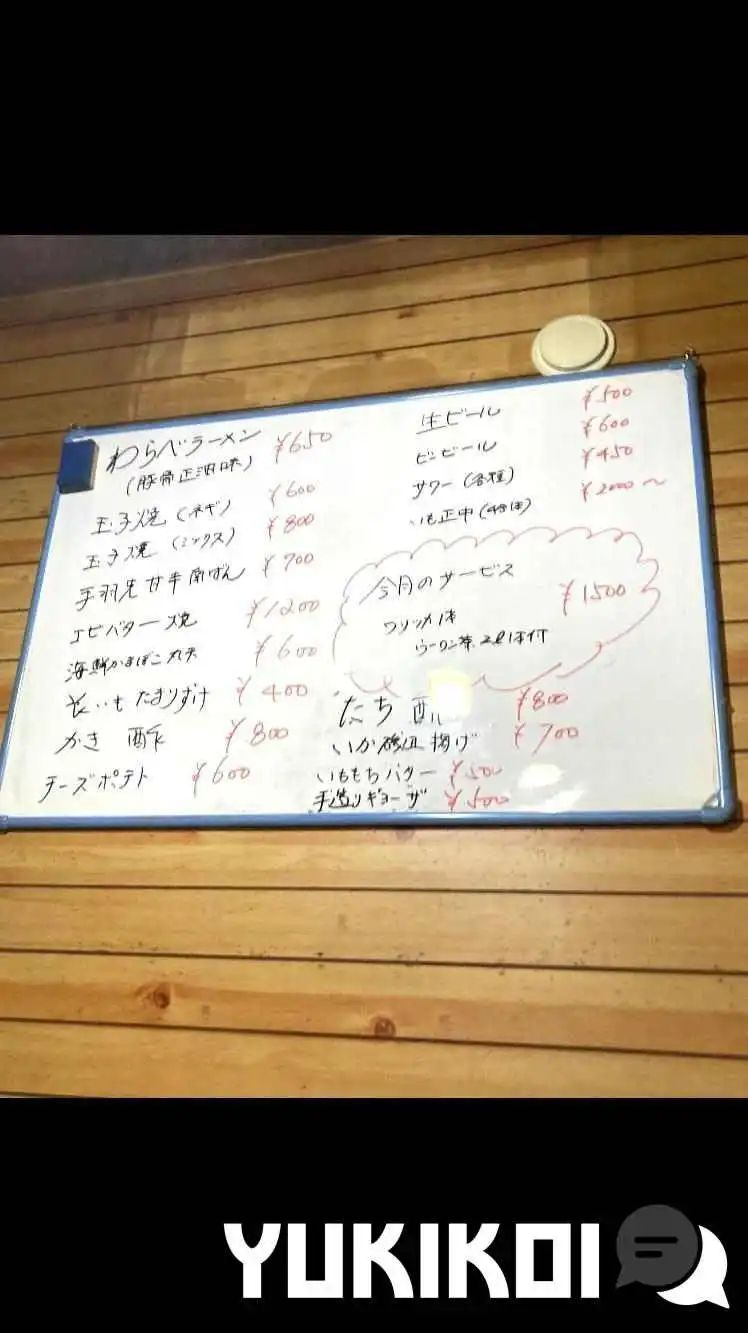 わらべラーメン ¥650
(豚骨正油味)
玉子焼(ネギ) ¥600
玉子焼(ミックス) ¥800
手羽先甘辛南ばん ¥700
エビバター焼 ¥1200
海鮮かまぼこ丸天 ¥600
長いもたまりずけ ¥400
かき酢 ¥800
チーズポテト ¥600
生ビール ¥500
ビンビール ¥600
サワー(各種) ¥450
いも正中(4合) ¥2000〜
今月のサービス
ウーロン茶2ℓ1本付
¥1500
たち酢 ¥800
いか磯辺揚げ ¥700
いももちバター ¥500
手造りギョーザ ¥500
YUKIKOI